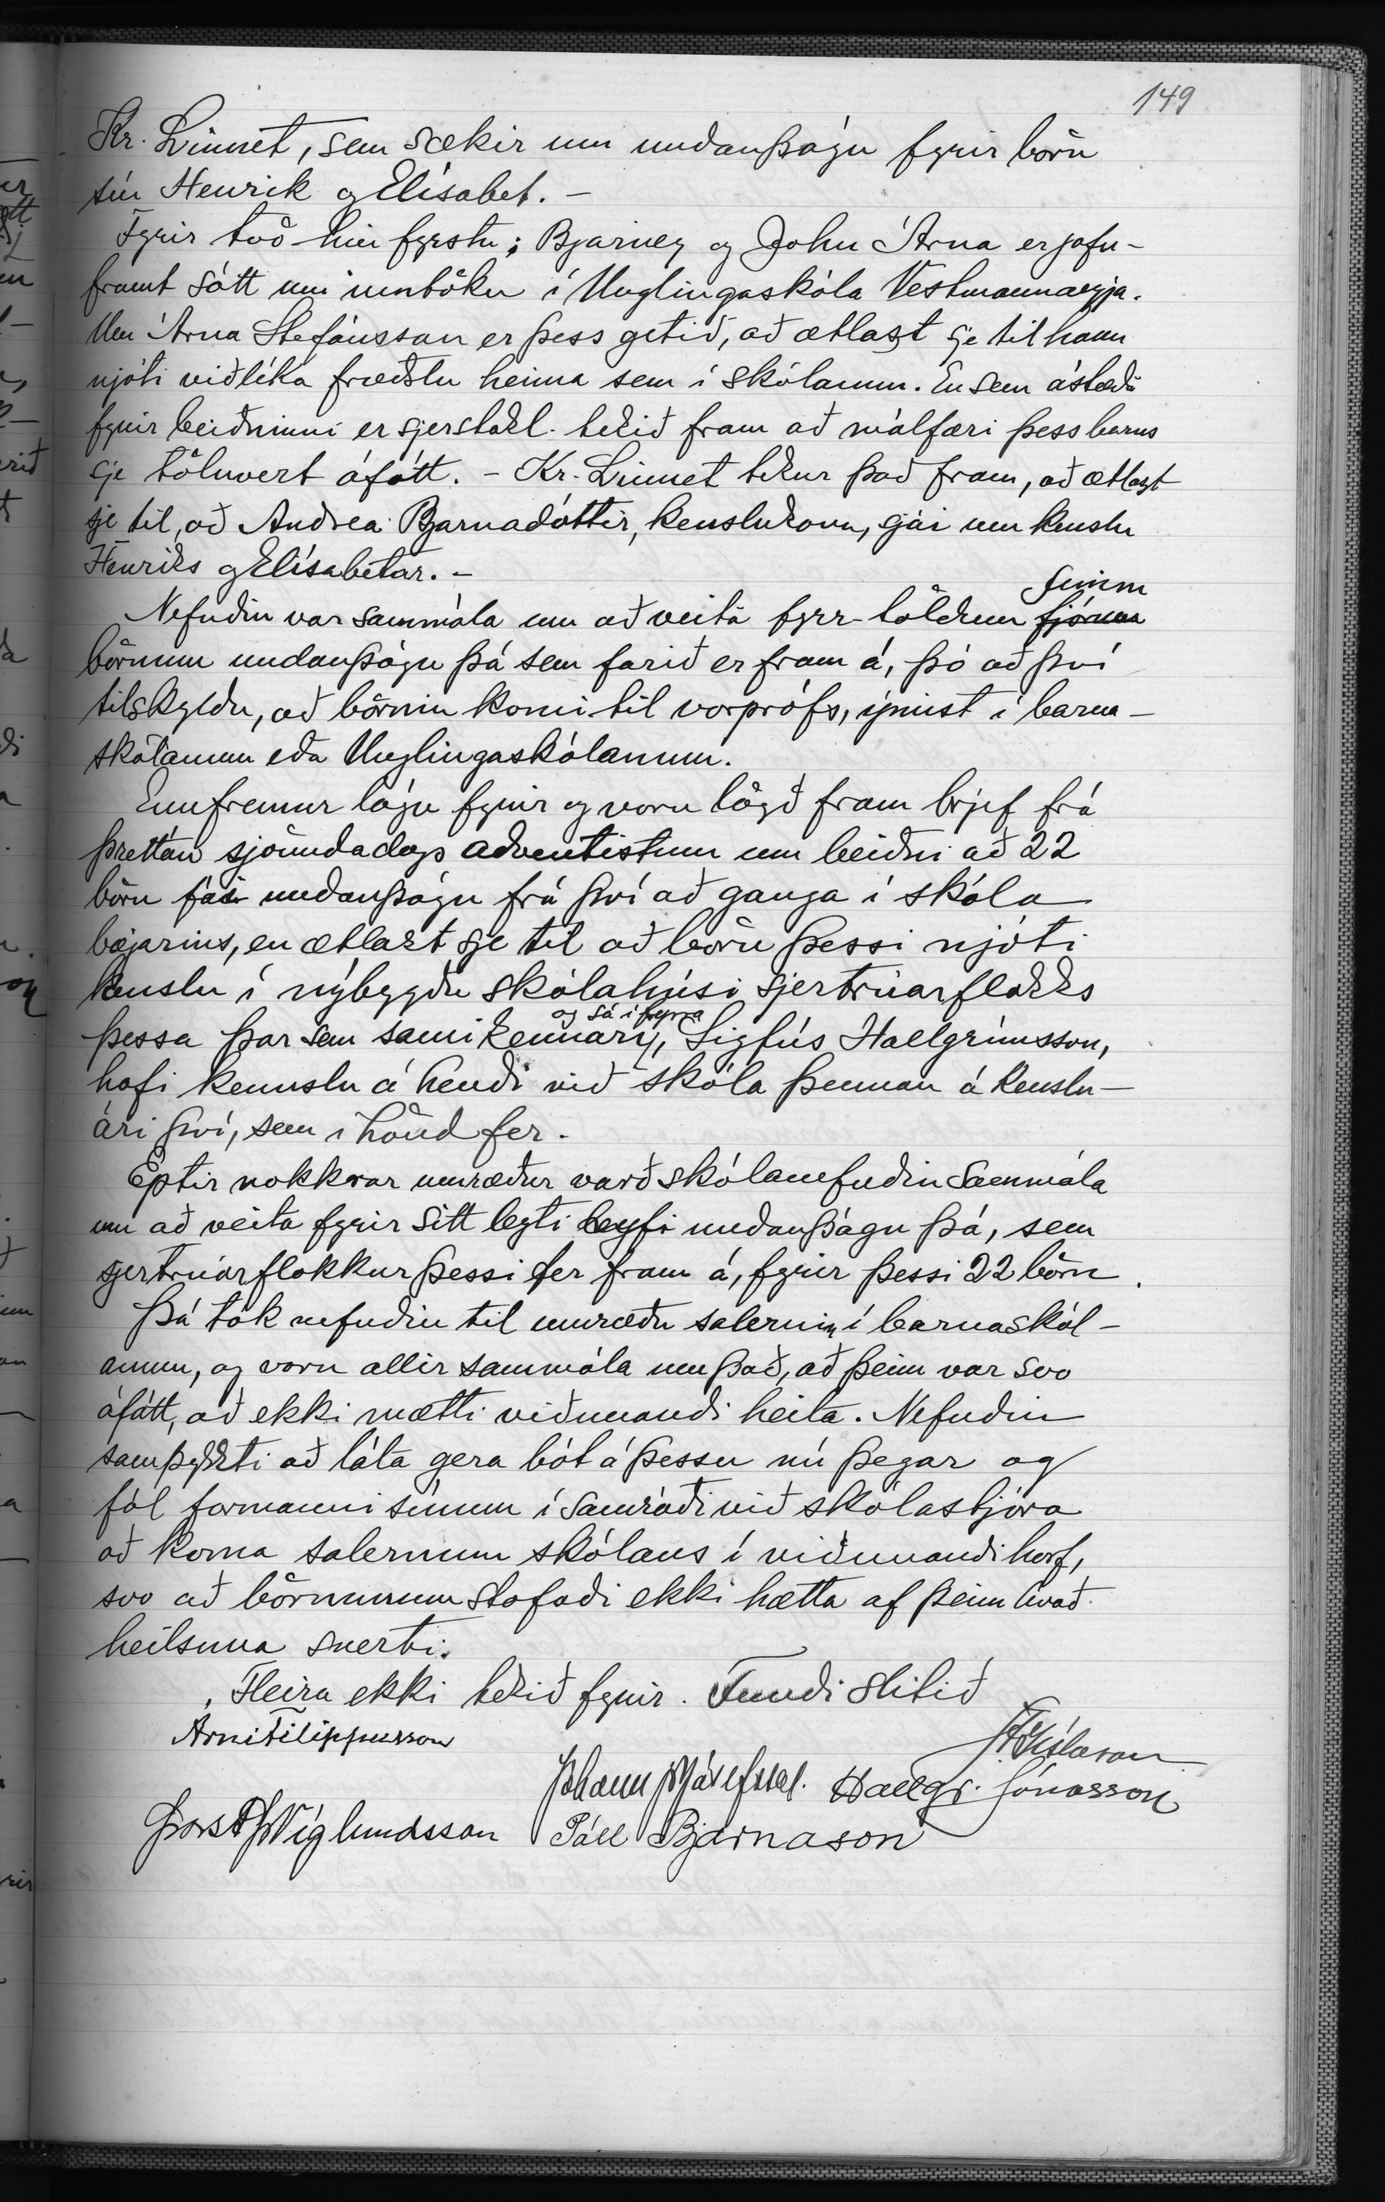 149
Kr. Linnet, sem sækir um undanþágu fyrir börn
sín Henrik og Elísabet. -
Fyrir tvö hin fyrstu; Bjarney og John Árna er jafn-
framt sótt um inntöku í Unglingaskóla Vestmannaeyja.
Um Árna Stefánsson er þess getið, að ætlazt sje til hann
njóti viðlíka fræðslu heima sem í skólanum. En sem ástæða
fyrir beiðninni er sjerstakl. tekið fram að málfæri þess barns
sje töluvert áfátt. - Kr. Linnet tekur það fram, að ætlazt
sje til, að Andrea Bjarnadóttir, kenslukona, sjái um kenslu
Henriks og Elísabetar. -
Nefndin var sammála um að veita fyrr-töldum fjórum fimm
börnum undanþágu þá sem farið er fram á, þó að því
tilskyldu, að börnin komi til vorprófs, ýmist í barna-
skólanum eða Unglingaskólanum.
Ennfremur lágu fyrir og voru lögð fram brjef frá
þrettán sjöundadags adventistum um beiðni að 22
börn fái undanþágu frá því að ganga í skóla
bæjarins, en ætlazt sje til að börn þessi njóti
kenslu í nýbygðu skólahúsi sjertrúarflokks
þessa þar sem sami kennari, og sá í fyrra, Sigfús Hallgrímsson,
hafi kennslu á hendi við skóla þennan á kenslu-
ári því, sem í hönd fer.
Eptir nokkrar umræður varð skólanefndin sammála
um að veita fyrir sitt leyti leyfi undanþágu þá, sem
sjertrúarflokkur þessi fer fram á, fyrir þessi 22 börn.
Þá tók nefndin til umræðu salernin í barnaskól-
anum, og voru allir sammála um það, að þeim var svo
áfátt, að ekki mætti viðunandi heita. Nefndin
samþykkti að láta gera bót á þessu nú þegar og
fól formanni sínum í samráði við skólastjóra
að koma salernum skólans í viðunandi horf,
svo að börnunum stafaði ekki hætta af þeim hvað
heilsuna snerti.
Fleira ekki tekið fyrir. Fundi slitið
Árni Filippusson
Jóhann Þ Jósefsson. Hallgr. Jónasson
Þorst Þ Víglundsson Páll Bjarnason